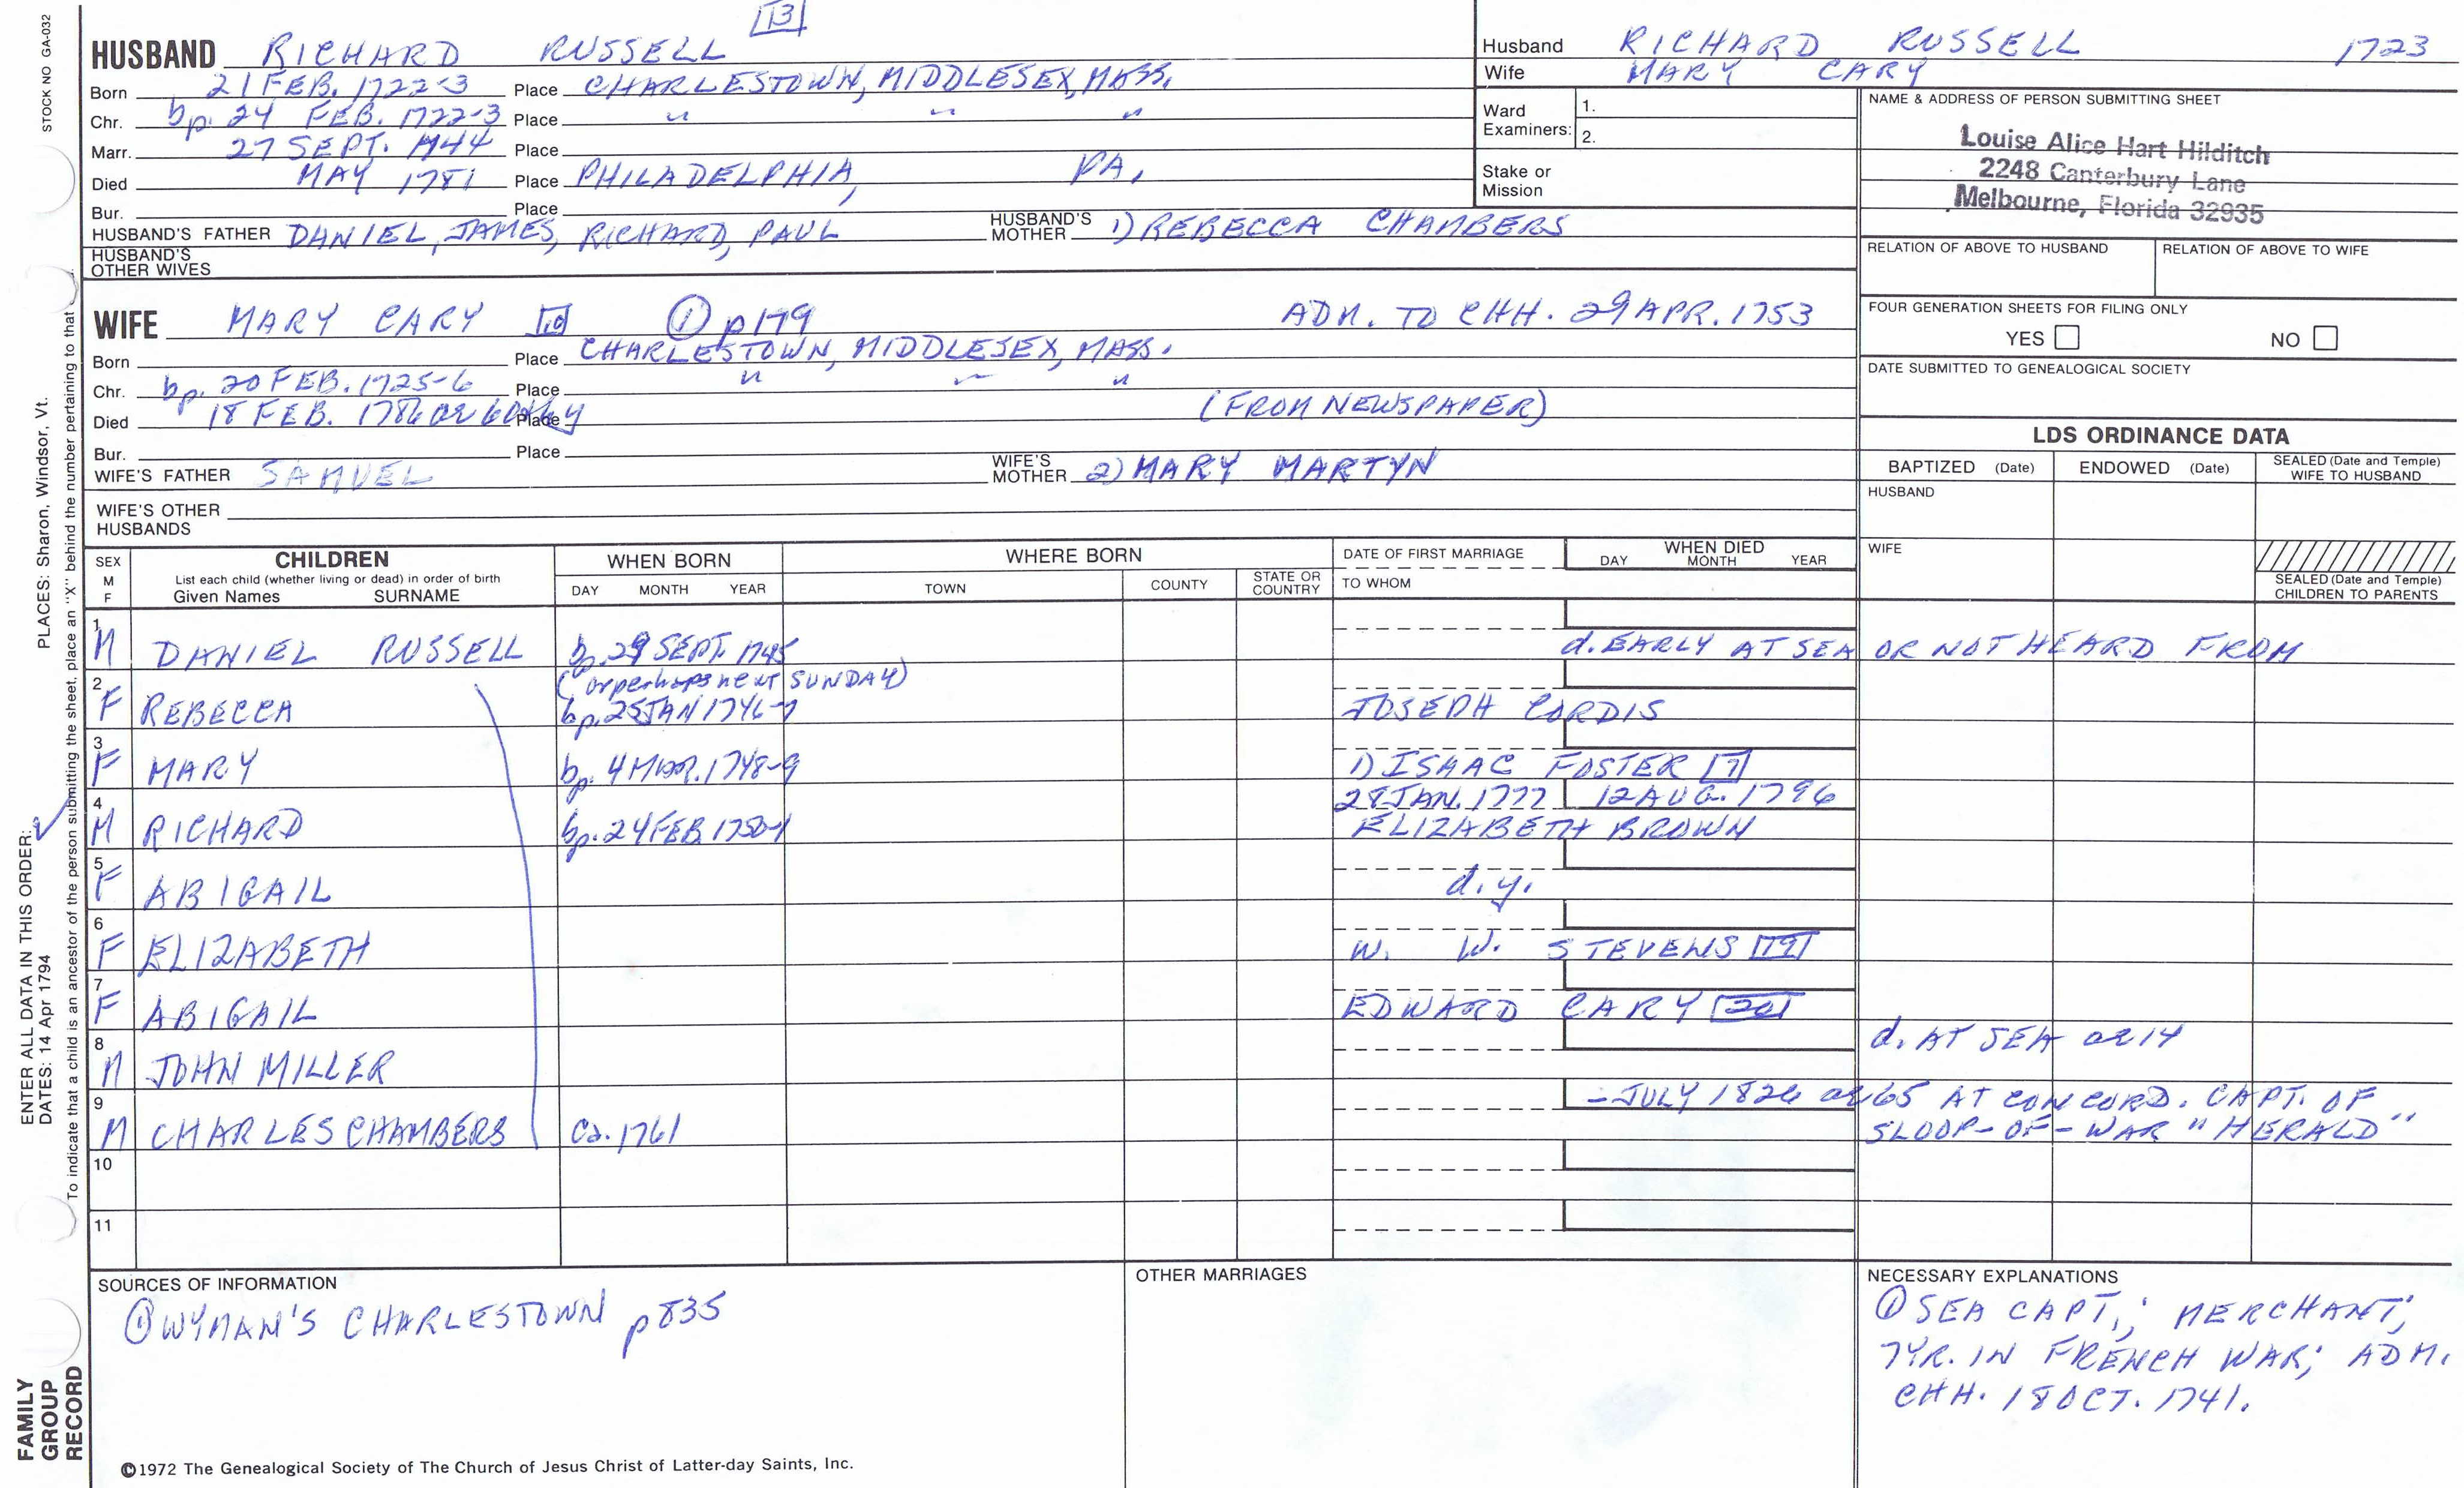 13
HUSBAND RICHARD RUSSELL
Born 21 FEB. 1722-3 Place CHARLESTOWN, MIDDLESEX, MASS.
Chr. bp. 24 FEB. 1722-3 Place " " "
Marr. 27 SEPT. 1744 Place
Died MAY 1781 Place PHILADELPHIA, PA.
Bur. Place
HUSBAND'S FATHER DANIEL, JAMES, RICHARD, PAUL HUSBAND'S MOTHER 1) REBECCA CHAMBERS
HUSBAND'S OTHER WIVES
Husband RICHARD RUSSELL 1723
Wife MARY CARY
Ward Examiners: 1.
2.
Stake or Mission
NAME & ADDRESS OF PERSON SUBMITTING SHEET
Louise Alice Hart Hilditch
2248 Canterbury Lane
Melbourne, Florida 32935
RELATION OF ABOVE TO HUSBAND RELATION OF ABOVE TO WIFE
FOUR GENERATION SHEETS FOR FILING ONLY
YES NO
DATE SUBMITTED TO GENEALOGICAL SOCIETY
WIFE MARY CARY 10 ① p179 ADM. TO CHH. 29 APR. 1753
Born Place CHARLESTOWN, MIDDLESEX, MASS.
Chr. bp. 20 FEB. 1725-6 Place " " "
Died 18 FEB. 1786 ae 60 Place (FROM NEWSPAPER)
Bur. Place
WIFE'S FATHER SAMUEL WIFE'S MOTHER 2) MARY MARTYN
WIFE'S OTHER HUSBANDS
LDS ORDINANCE DATA
BAPTIZED (Date) ENDOWED (Date) SEALED (Date and Temple) WIFE TO HUSBAND
HUSBAND
WIFE
SEALED (Date and Temple) CHILDREN TO PARENTS
SEX M F CHILDREN WHEN BORN WHERE BORN DATE OF FIRST MARRIAGE WHEN DIED
List each child (whether living or dead) in order of birth
Given Names SURNAME DAY MONTH YEAR TOWN COUNTY STATE OR COUNTRY TO WHOM DAY MONTH YEAR
1 M DANIEL RUSSELL bp. 29 SEPT. 1745 d. EARLY AT SEA OR NOT HEARD FROM
(or perhaps next SUNDAY)
2 F REBECCA bp. 25 JAN 1746-7 JOSEPH CORDIS
3 F MARY bp. 4 MAR. 1748-9 1) ISAAC FOSTER 7
28 JAN. 1777 12 AUG. 1796
4 M RICHARD bp. 24 FEB 1750-1 ELIZABETH BROWN
5 F ABIGAIL d.y.
6 F ELIZABETH W. W. STEVENS 19
7 F ABIGAIL EDWARD CARY 20
8 M JOHN MILLER d. AT SEA ae 14
9 M CHARLES CHAMBERS ca. 1761 - JULY 1826 ae 65 AT CONCORD. CAPT. OF
SLOOP-OF-WAR "HERALD"
10
11
SOURCES OF INFORMATION
① WYMAN'S CHARLESTOWN p835
OTHER MARRIAGES
NECESSARY EXPLANATIONS
① SEA CAPT.; MERCHANT;
7 YR. IN FRENCH WAR; ADM.
CHH. 18 OCT. 1741.
©1972 The Genealogical Society of The Church of Jesus Christ of Latter-day Saints, Inc.
STOCK NO GA-032
PLACES: Sharon, Windsor, Vt.
To indicate that a child is an ancestor of the person submitting the sheet, place an "X" behind the number pertaining to that
ENTER ALL DATA IN THIS ORDER:
DATES: 14 Apr 1794
FAMILY
GROUP
RECORD